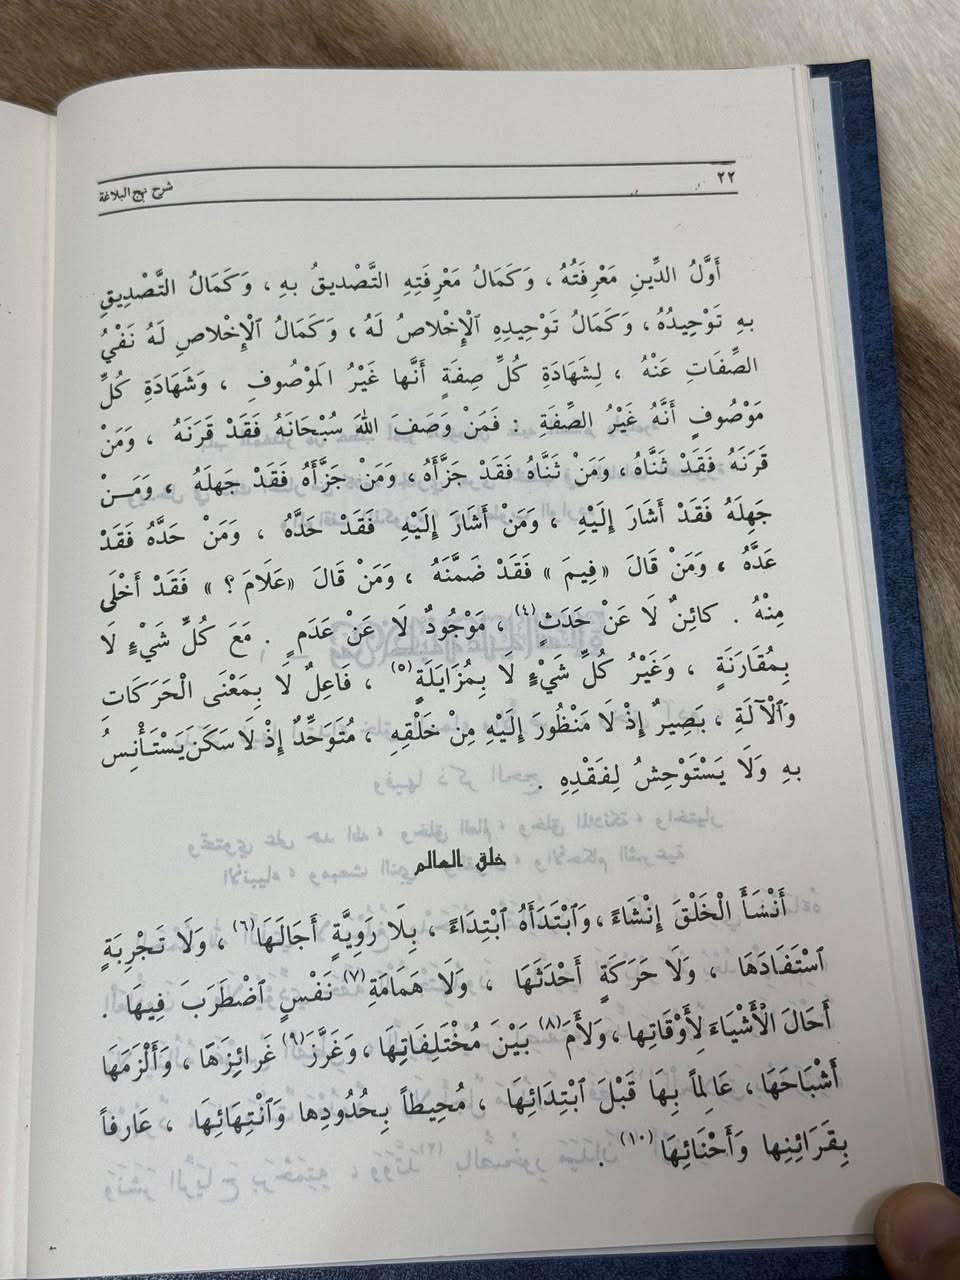 ٢٢ شرح نهج البلاغة
أَوَّلُ الدِّينِ مَعْرِفَتُهُ ، وَكَمَالُ مَعْرِفَتِهِ التَّصْدِيقُ بِهِ ، وَكَمَالُ التَّصْدِيقِ
بِهِ تَوْحِيدُهُ ، وَكَمَالُ تَوْحِيدِهِ الْإِخْلاصُ لَهُ ، وَكَمَالُ الْإِخْلاصِ لَهُ نَفْيُ
الصِّفَاتِ عَنْهُ ، لِشَهَادَةِ كُلِّ صِفَةٍ أَنَّها غَيْرُ المَوْصُوفِ ، وَشَهَادَةِ كُلِّ
مَوْصُوفٍ أَنَّهُ غَيْرُ الصِّفَةِ : فَمَنْ وَصَفَ اللهَ سُبْحَانَهُ فَقَدْ قَرَنَهُ ، وَمَنْ
قَرَنَهُ فَقَدْ ثَنَّاهُ ، وَمَنْ ثَنَّاهُ فَقَدْ جَزَّأَهُ ، وَمَنْ جَزَّأَهُ فَقَدْ جَهِلَهُ ، وَمَـــنْ
جَهِلَهُ فَقَدْ أَشَارَ إِلَيْهِ ، وَمَنْ أَشَارَ إِلَيْهِ فَقَدْ حَدَّهُ ، وَمَنْ حَدَّهُ فَقَدْ
عَدَّهُ ، وَمَنْ قَالَ «فِيمَ » فَقَدْ ضَمَّنَهُ ، وَمَنْ قَالَ «عَلَامَ ؟ » فَقَدْ أَخْلَى
مِنْهُ . كائِنٌ لَا عَنْ حَدَثٍ(٤) ، مَوْجُودٌ لَا عَنْ عَدَمٍ . مَعَ كُلِّ شَيْءٍ لَا
بِمُقَارَنَةٍ ، وَغَيْرُ كُلِّ شَيْءٍ لَا بِمُزَايَلَةٍ(٥) ، فَاعِلٌ لَا بِمَعْنَى الْحَرَكَاتِ
وَٱلْآلَةِ ، بَصِيرٌ إِذْ لَا مَنْظُورَ إِلَيْهِ مِنْ خَلْقِهِ ، مُتَوَحِّدٌ إِذْ لَا سَكَنَ يَسْتَأْنِسُ
بِهِ وَلَا يَسْتَوْحِشُ لِفَقْدِهِ .
خلق العالم
أَنْشَأَ الْخَلْقَ إِنْشَاءً ، وَٱبْتَدَأَهُ ٱبْتِدَاءً ، بِلَا رَوِيَّةٍ أَجَالَهَا(٦) ، وَلَا تَجْرِبَةٍ
ٱسْتَفَادَهَا ، وَلَا حَرَكَةٍ أَحْدَثَهَا ، وَلَا هَمَامَةِ(٧) نَفْسٍ ٱضْطَرَبَ فِيهَا .
أَحَالَ الْأَشْيَاءَ لِأَوْقَاتِها ، وَلأَمَ(٨) بَيْنَ مُخْتَلِفَاتِهَا ، وَغَرَّزَ(٩) غَرائِزَهَا ، وَأَلْزَمَهَا
أَشْبَاحَهَا ، عَالِماً بِهَا قَبْلَ ٱبْتِدَائِهَا ، مُحِيطاً بِحُدُودِها وَٱنْتِهَائِهَا ، عَارفاً
بِقَرَائِنِها وَأَحْنَائِهَا (١٠) .